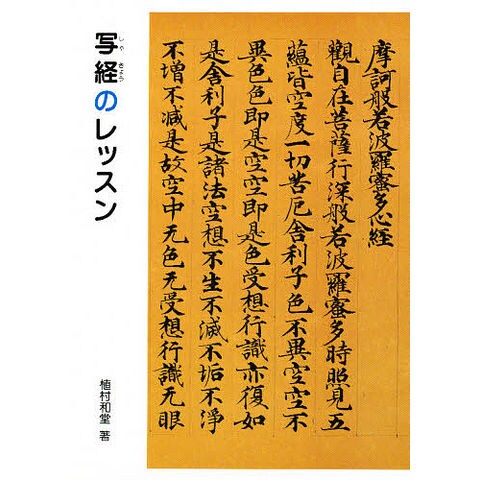 摩訶般若波羅蜜多心経
觀自在菩薩行深般若波羅蜜多時照見五
蘊皆空度一切苦厄舍利子色不異空空不
異色色即是空空即是色受想行識亦復如
是舍利子是諸法空想不生不滅不垢不淨
不增不減是故空中无色无受想行識无眼
しゃきょう
写経のレッスン
植村和堂 著